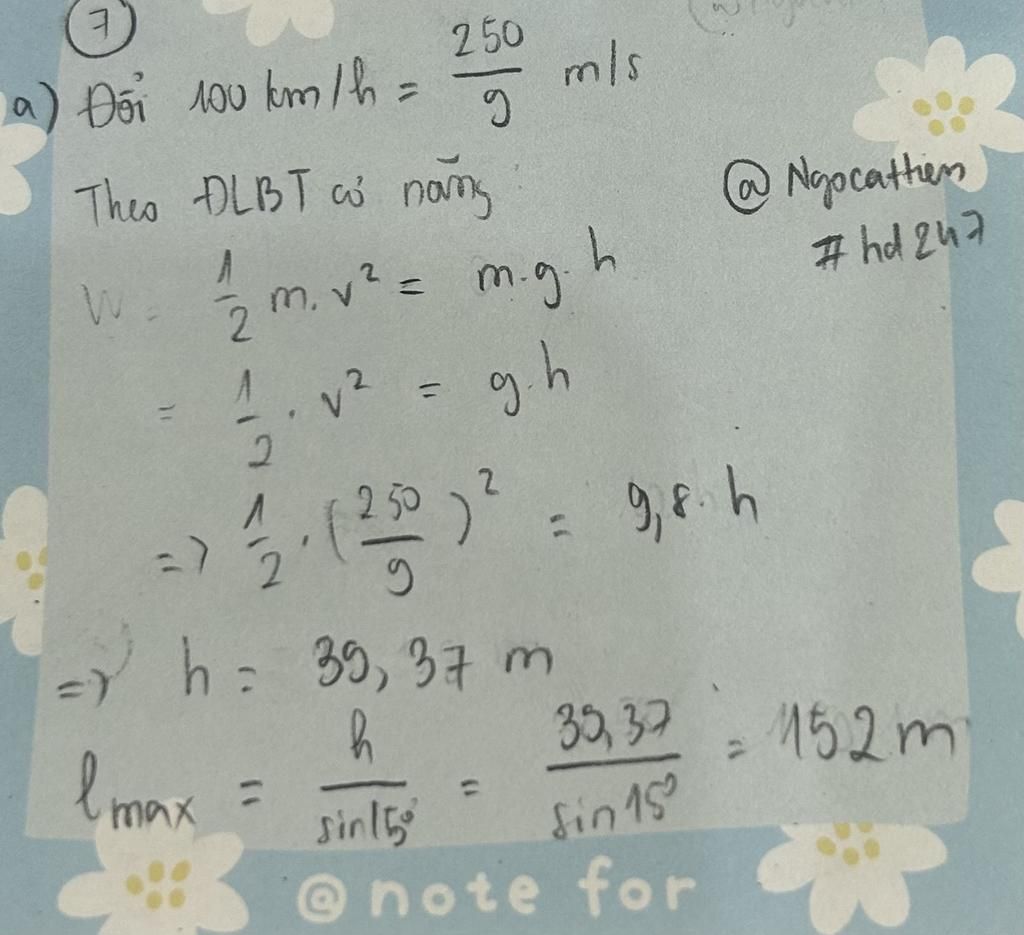 7
a) Đổi 100 km/h = 250/9 m/s
Theo ĐLBT cơ năng:
@Ngocattien
#hd247
W = 1/2 m.v² = m.g.h
= 1/2 . v² = g.h
=> 1/2 . (250/9)² = 9,8.h
=> h = 39,37 m
lmax = h/sin15° = 39,37/sin15° = 152 m
@note for